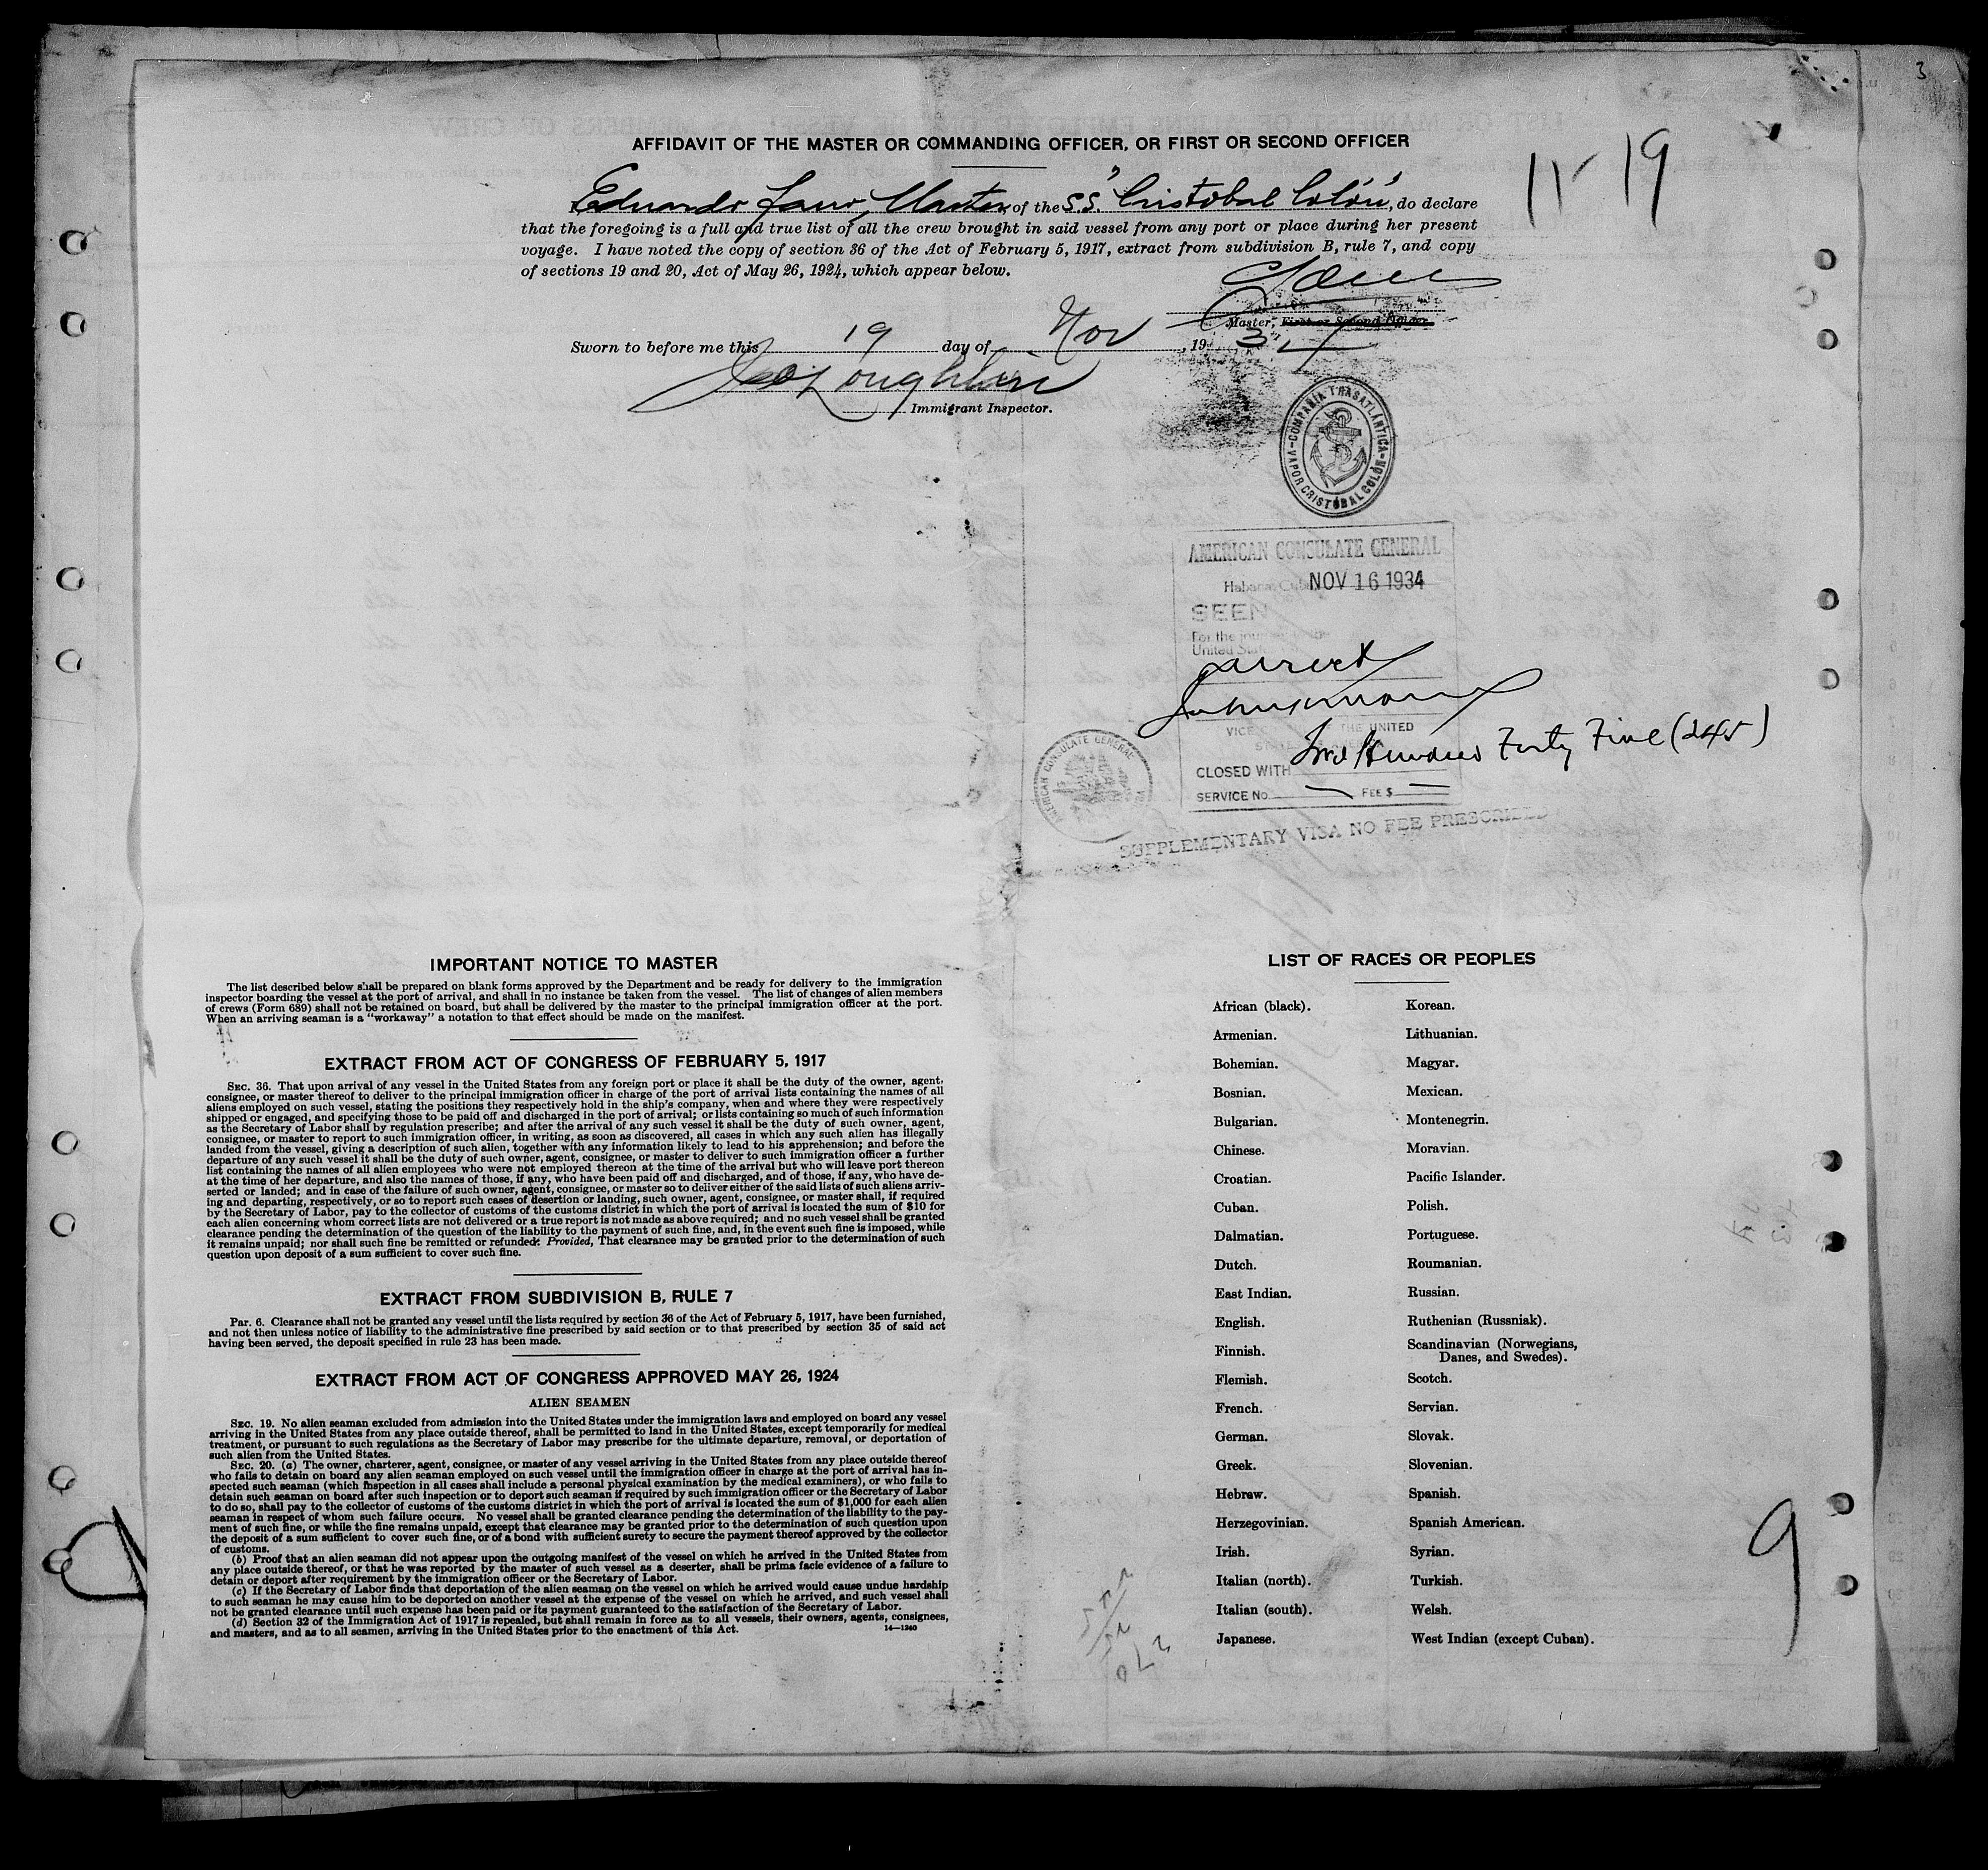 3
11-19
AFFIDAVIT OF THE MASTER OR COMMANDING OFFICER, OR FIRST OR SECOND OFFICER
I, Eduardo Master of the S.S. "Cristobal Colón", do declare
that the foregoing is a full and true list of all the crew brought in said vessel from any port or place during her present
voyage. I have noted the copy of section 36 of the Act of February 5, 1917, extract from subdivision B, rule 7, and copy
of sections 19 and 20, Act of May 26, 1924, which appear below.
Master, First or Second Officer.
Sworn to before me this 19 day of Nov, 1934
Immigrant Inspector.
COMPAÑIA TRASATLÁNTICA
VAPOR CRISTÓBAL COLÓN
AMERICAN CONSULATE GENERAL
Habana, Cuba NOV 16 1934
SEEN
For the journey to the
United States
direct
VICE THE UNITED
CLOSED WITH Two Hundred Forty Five (245)
SERVICE No. FEE $
AMERICAN CONSULATE GENERAL
SUPPLEMENTARY VISA NO FEE PRESCRIBED
IMPORTANT NOTICE TO MASTER
The list described below shall be prepared on blank forms approved by the Department and be ready for delivery to the immigration
inspector boarding the vessel at the port of arrival, and shall in no instance be taken from the vessel. The list of changes of alien members
of crews (Form 689) shall not be retained on board, but shall be delivered by the master to the principal immigration officer at the port.
When an arriving seaman is a "workaway" a notation to that effect should be made on the manifest.
EXTRACT FROM ACT OF CONGRESS OF FEBRUARY 5, 1917
SEC. 36. That upon arrival of any vessel in the United States from any foreign port or place it shall be the duty of the owner, agent,
consignee, or master thereof to deliver to the principal immigration officer in charge of the port of arrival lists containing the names of all
aliens employed on such vessel, stating the positions they respectively hold in the ship's company, when and where they were respectively
shipped or engaged, and specifying those to be paid off and discharged in the port of arrival; or lists containing so much of such information
as the Secretary of Labor shall by regulation prescribe; and after the arrival of any such vessel it shall be the duty of such owner, agent,
consignee, or master to report to such immigration officer, in writing, as soon as discovered, all cases in which any such alien has illegally
landed from the vessel, giving a description of such alien, together with any information likely to lead to his apprehension; and before the
departure of any such vessel it shall be the duty of such owner, agent, consignee, or master to deliver to such immigration officer a further
list containing the names of all alien employees who were not employed thereon at the time of the arrival but who will leave port thereon
at the time of her departure, and also the names of those, if any, who have been paid off and discharged, and of those, if any, who have de-
serted or landed; and in case of the failure of such owner, agent, consignee, or master so to deliver either of the said lists of such aliens arriv-
ing and departing, respectively, or so to report such cases of desertion or landing, such owner, agent, consignee, or master shall, if required
by the Secretary of Labor, pay to the collector of customs of the customs district in which the port of arrival is located the sum of $10 for
each alien concerning whom correct lists are not delivered or a true report is not made as above required; and no such vessel shall be granted
clearance pending the determination of the question of the liability to the payment of such fine, and, in the event such fine is imposed, while
it remains unpaid; nor shall such fine be remitted or refunded: Provided, That clearance may be granted prior to the determination of such
question upon deposit of a sum sufficient to cover such fine.
EXTRACT FROM SUBDIVISION B, RULE 7
Par. 6. Clearance shall not be granted any vessel until the lists required by section 36 of the Act of February 5, 1917, have been furnished,
and not then unless notice of liability to the administrative fine prescribed by said section or to that prescribed by section 35 of said act
having been served, the deposit specified in rule 23 has been made.
EXTRACT FROM ACT OF CONGRESS APPROVED MAY 26, 1924
ALIEN SEAMEN
SEC. 19. No alien seaman excluded from admission into the United States under the immigration laws and employed on board any vessel
arriving in the United States from any place outside thereof, shall be permitted to land in the United States, except temporarily for medical
treatment, or pursuant to such regulations as the Secretary of Labor may prescribe for the ultimate departure, removal, or deportation of
such alien from the United States.
SEC. 20. (a) The owner, charterer, agent, consignee, or master of any vessel arriving in the United States from any place outside thereof
who fails to detain on board any alien seaman employed on such vessel until the immigration officer in charge at the port of arrival has in-
spected such seaman (which inspection in all cases shall include a personal physical examination by the medical examiners), or who fails to
detain such seaman on board after such inspection or to deport such seaman if required by such immigration officer or the Secretary of Labor
to do so, shall pay to the collector of customs of the customs district in which the port of arrival is located the sum of $1,000 for each alien
seaman in respect of whom such failure occurs. No vessel shall be granted clearance pending the determination of the liability to the pay-
ment of such fine, or while the fine remains unpaid, except that clearance may be granted prior to the determination of such question upon
the deposit of a sum sufficient to cover such fine, or of a bond with sufficient surety to secure the payment thereof approved by the collector
of customs.
(b) Proof that an alien seaman did not appear upon the outgoing manifest of the vessel on which he arrived in the United States from
any place outside thereof, or that he was reported by the master of such vessel as a deserter, shall be prima facie evidence of a failure to
detain or deport after requirement by the immigration officer or the Secretary of Labor.
(c) If the Secretary of Labor finds that deportation of the alien seaman on the vessel on which he arrived would cause undue hardship
to such seaman he may cause him to be deported on another vessel at the expense of the vessel on which he arrived, and such vessel shall
not be granted clearance until such expense has been paid or its payment guaranteed to the satisfaction of the Secretary of Labor.
(d) Section 32 of the Immigration Act of 1917 is repealed, but shall remain in force as to all vessels, their owners, agents, consignees,
and masters, and as to all seamen, arriving in the United States prior to the enactment of this Act.
14—1240
LIST OF RACES OR PEOPLES
African (black). Korean.
Armenian. Lithuanian.
Bohemian. Magyar.
Bosnian. Mexican.
Bulgarian. Montenegrin.
Chinese. Moravian.
Croatian. Pacific Islander.
Cuban. Polish.
Dalmatian. Portuguese.
Dutch. Roumanian.
East Indian. Russian.
English. Ruthenian (Russniak).
Finnish. Scandinavian (Norwegians,
Danes, and Swedes).
Flemish. Scotch.
French. Servian.
German. Slovak.
Greek. Slovenian.
Hebrew. Spanish.
Herzegovinian. Spanish American.
Irish. Syrian.
Italian (north). Turkish.
Italian (south). Welsh.
Japanese. West Indian (except Cuban).
9